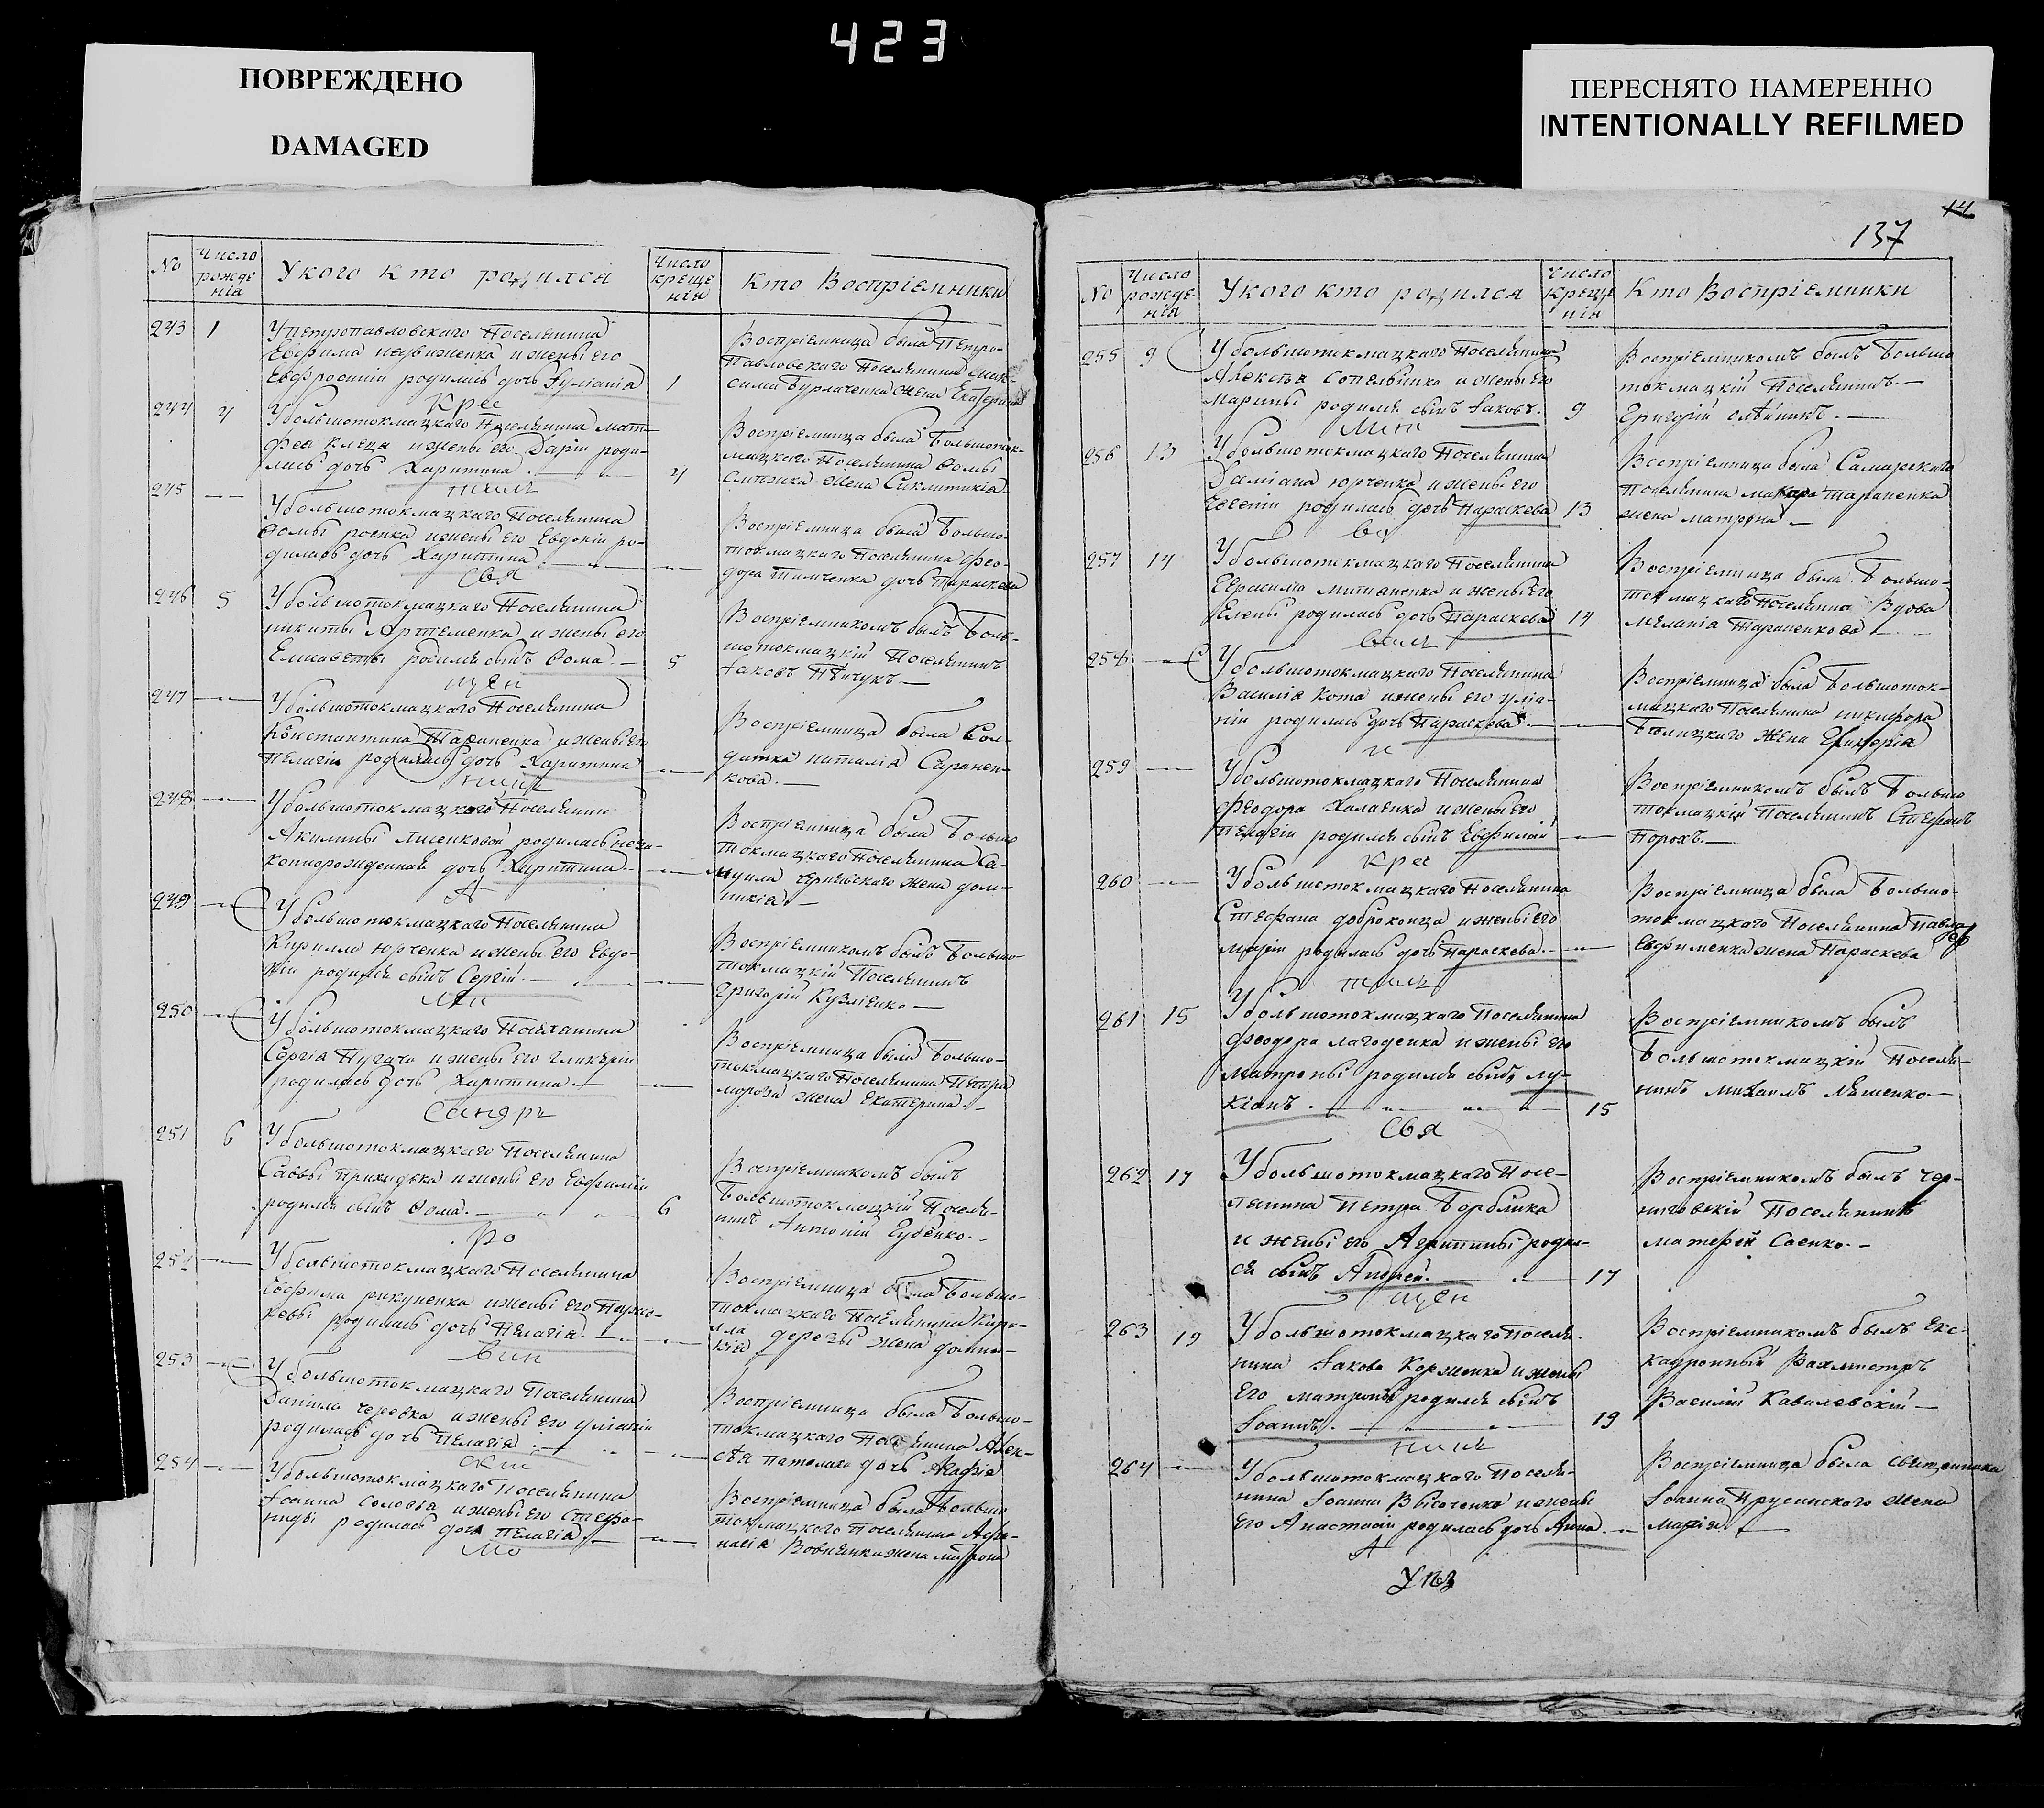 423
ПОВРЕЖДЕНО
DAMAGED
ПЕРЕСНЯТО НАМЕРЕННО
INTENTIONALLY REFILMED
№ Число рожденія У кого кто родился Число крещенія Кто Воспріемники
243 1 У петропавловскаго Поселянина
Евфима и жены его
Евфросиніи родилась дочь Іуліанія 1
Воспріемница была Петро-
Павловскаго Поселянина Мак-
сима Бурлаченка жена Екатерина
Крес
244 4 У большотокмацкаго Поселянина Мат-
фея Клеца и жены его Даріи роди-
лась дочь Харитина 4
Воспріемница была Большоток-
мацкаго Поселянина Фомы
жена Синклитикія
245 У большотокмацкаго Поселянина
Фомы и жены его Евдокіи ро-
дилась дочь Харитина
Воспріемница была Большо-
токмацкаго Поселянина Фео-
дора Тимченка дочь Параскева
Свя
246 5 У большотокмацкаго Поселянина
Никиты Артеменка и жены его
Елисаветы родился сынъ Фома 5
Воспріемникомъ былъ Боль-
шотокмацкій Поселянинъ
Іаковъ
щен
247 У большотокмацкаго Поселянина
Константина Тараненка и жены его
Пелагіи родилась дочь Харитина
Воспріемница была Сол-
датка Наталія
кова.
ник
248 У большотокмацкаго Поселянина
Акилины Лисенковой родилась неза-
коннорожденная дочь Харитина
Воспріемница была Больше
токмацкаго Поселянина Са-
муила жена Дом-
никія
А
249 У большотокмацкаго Поселянина
Кирилла Юрченка и жены его Евдо-
кіи родился сынъ Сергій
Воспріемникомъ былъ Больше
токмацкій Поселянинъ
Григорій Кузменко
250 У большотокмацкаго Поселянина
Сергія Пугача и жены его Гликеріи
родилась дочь Харитина
Воспріемница была Большо-
токмацкаго Поселянина Петра
Мороза жена Екатерина
251 6 У большотокмацкаго Поселянина
Саввы Приходька и жены его Евфиміи
родился сынъ Фома 6
Воспріемникомъ былъ
Большотокмацкій Поселя-
нинъ Антоній Губенко.
ро
252 У большотокмацкаго Поселянина
и жены его Параске-
родилась дочь Пелагія
Воспріемница была Большо-
токмацкаго Поселянина Кири-
лла жена Домни-
кія
253 У большотокмацкаго Поселянина
Даніила Черевка и жены его Уліаніи
родилась дочь Пелагія
Воспріемница была Большо-
токмацкаго Поселянина Алек-
сѣя дочь Агафія
254 У большотокмацкаго Поселянина
Іоанна Соловья и жены его Стефа-
ниды родилась дочь Пелагія
Воспріемница была Больше
токмацкаго Поселянина Афа-
насія жена Матрона
мо
14
137
№ Число рожденія У кого кто родился Число крещенія Кто Воспріемники
255 9 У большотокмацкаго Поселянина
Алексѣя Сопельника и жены его
Марины родился сынъ Іаковъ. 9
Воспріемникомъ былъ Больше
токмацкій Поселянинъ
Григорій Олѣйникъ.
256 13 У большотокмацкаго Поселянина
Даміана Юрченка и жены его
Евгеніи родилась дочь Параскева 13
Воспріемница была Самарскаго
Поселянина Макара Тараненка
жена Матрона
257 14 У большотокмацкаго Поселянина
Герасима и жены его
Елены родилась дочь Параскева 14
Воспріемница была Большо-
токмацкаго Поселянина Вдова
Меланія Тараненкова
258 У большотокмацкаго Поселянина
Василія Кота и жены его Уліа-
ніи родилась дочь Параскева
Воспріемница была Большоток-
мацкаго Поселянина Никифора
Бѣлицкаго жена Гликерія
и
259 У большотокмацкаго Поселянина
Феодора и жены его
Пелагіи родился сынъ Евфимій
Воспріемникомъ былъ Больше
токмацкій Поселянинъ Стефанъ
Порохъ.
Крес
260 У большотокмацкаго Поселянина
Стефана и жены его
Маріи родилась дочь Параскева
Воспріемница была Большо-
токмацкаго Поселянина Павла
Евфименка жена Параскева
261 15 У большотокмацкаго Поселянина
Феодора Лагоденка и жены его
Матроны родился сынъ Лу-
кіанъ. 15
Воспріемникомъ былъ
Большотокмацкій Поселя-
нинъ Михаилъ Ляшенко
Свя
262 17 У большотокмацкаго Посе-
лянина Петра
и жены его Агрипины роди-
ся сынъ Андрей. 17
Воспріемникомъ былъ Чер-
ниговскій Поселянинъ
Матфей Саенко.
щен
263 19 У большотокмацкаго Поселя-
нина Іакова Корженка и жены
его Матроны родился сынъ
Іоаннъ. 19
Воспріемникомъ былъ Еск-
кадронный Вахмистръ
Василій Кавалевскій
ник
264 У большотокмацкаго Поселя-
нина Іоанна Высоченка и жены
его Анастасіи родилась дочь Анна
Воспріемница была священника
Іоанна Прусинскаго жена
Марія
А